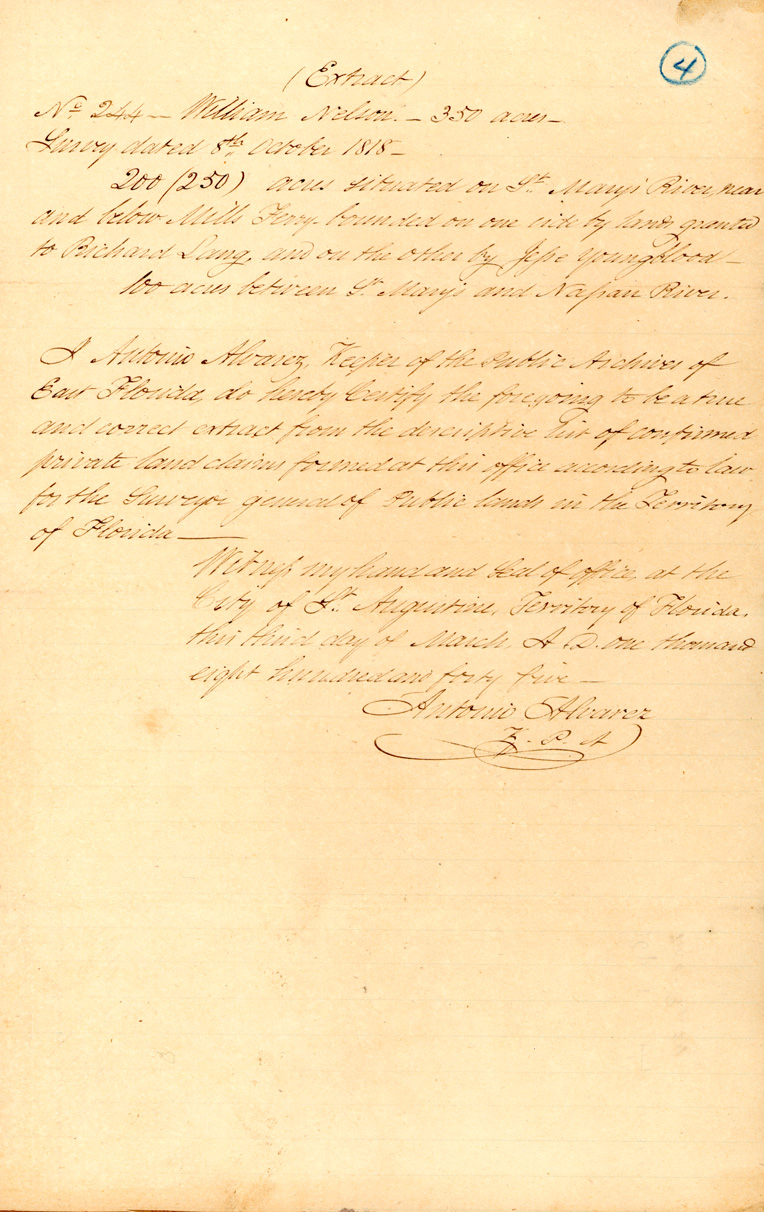 4
(Extract)
No 244 — William Nelson. — 350 acres —
Survey dated 8th October 1818 —
200 (250) acres situated on St. Mary's River, near
and below Mills Ferry - bounded on one side by lands granted
to Richard Lang, and on the other by Jesse Youngblood —
100 acres between St. Mary's and Nassau River.
I Antonio Alvarez, Keeper of the Public Archives of
East Florida, do hereby Certify the foregoing to be a true
and correct extract from the descriptive list of confirmed
private land claims formed at this office according to law
for the Surveyor general of Public lands in the Territory
of Florida —
Witness my hand and Seal of office, at the
City of St. Augustine, Territory of Florida,
this third day of March, A. D. one thousand
eight hundred and forty five —
Antonio Alvarez
K. P. A